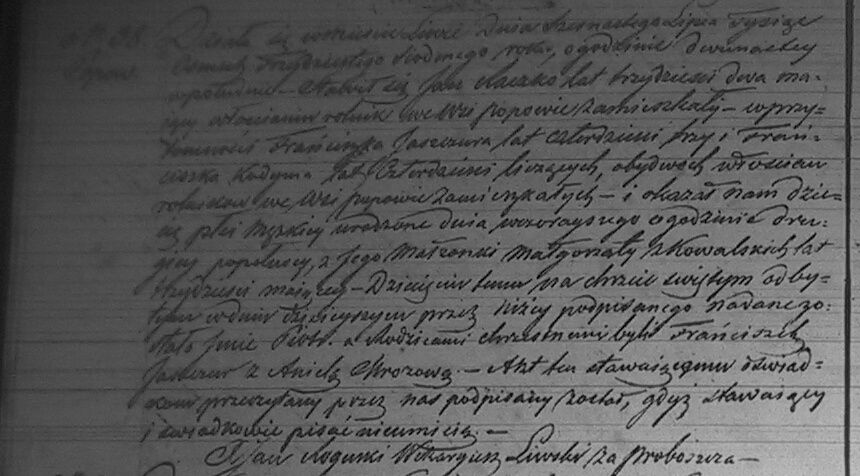 N. 38. Działo się w mieście Liwie Dnia Szesnastego Lipca Tysiąc
Popow. Osmset Trzydziestego siodmego roku, o godzinie dwunastey
w południe – Stawił się Jan Maczko lat trzydzieści dwa ma-
jący włościanin rolnik we wsi Popowie zamieszkały – w przy-
tomności Franciszka Jaszczura lat czterdzieści trzy i Fran-
ciszka Kadyma lat Czterdzieści liczących, obydwoch włościan
rolnikow we wsi popowie zamieszkałych – i okazał nam dzie-
cię płci męzkiey urodzone dnia wczorayszego o godzinie dru-
giey popołuciey, z Jego Małżonki Małgorzaty z Kowalskich lat
trzydzieści maiącey – Dziecięciu temu na chrzcie swiętym odby-
tym w dniu dzisieyszym przez niżey podpisanego nadane zo-
stało Jmie Piotr. a Rodzicami chrzestnemi byli Franciszek
Jaszczur z Anielą Mrozową. – Akt ten stawaiącemu i swiad-
kom przeczytany przez nas podpisany został, gdyż stawaiący
i swiadkowie pisać nieumieią. –
X Jan Rogunki Wikaryusz Liwski za Proboszcza –